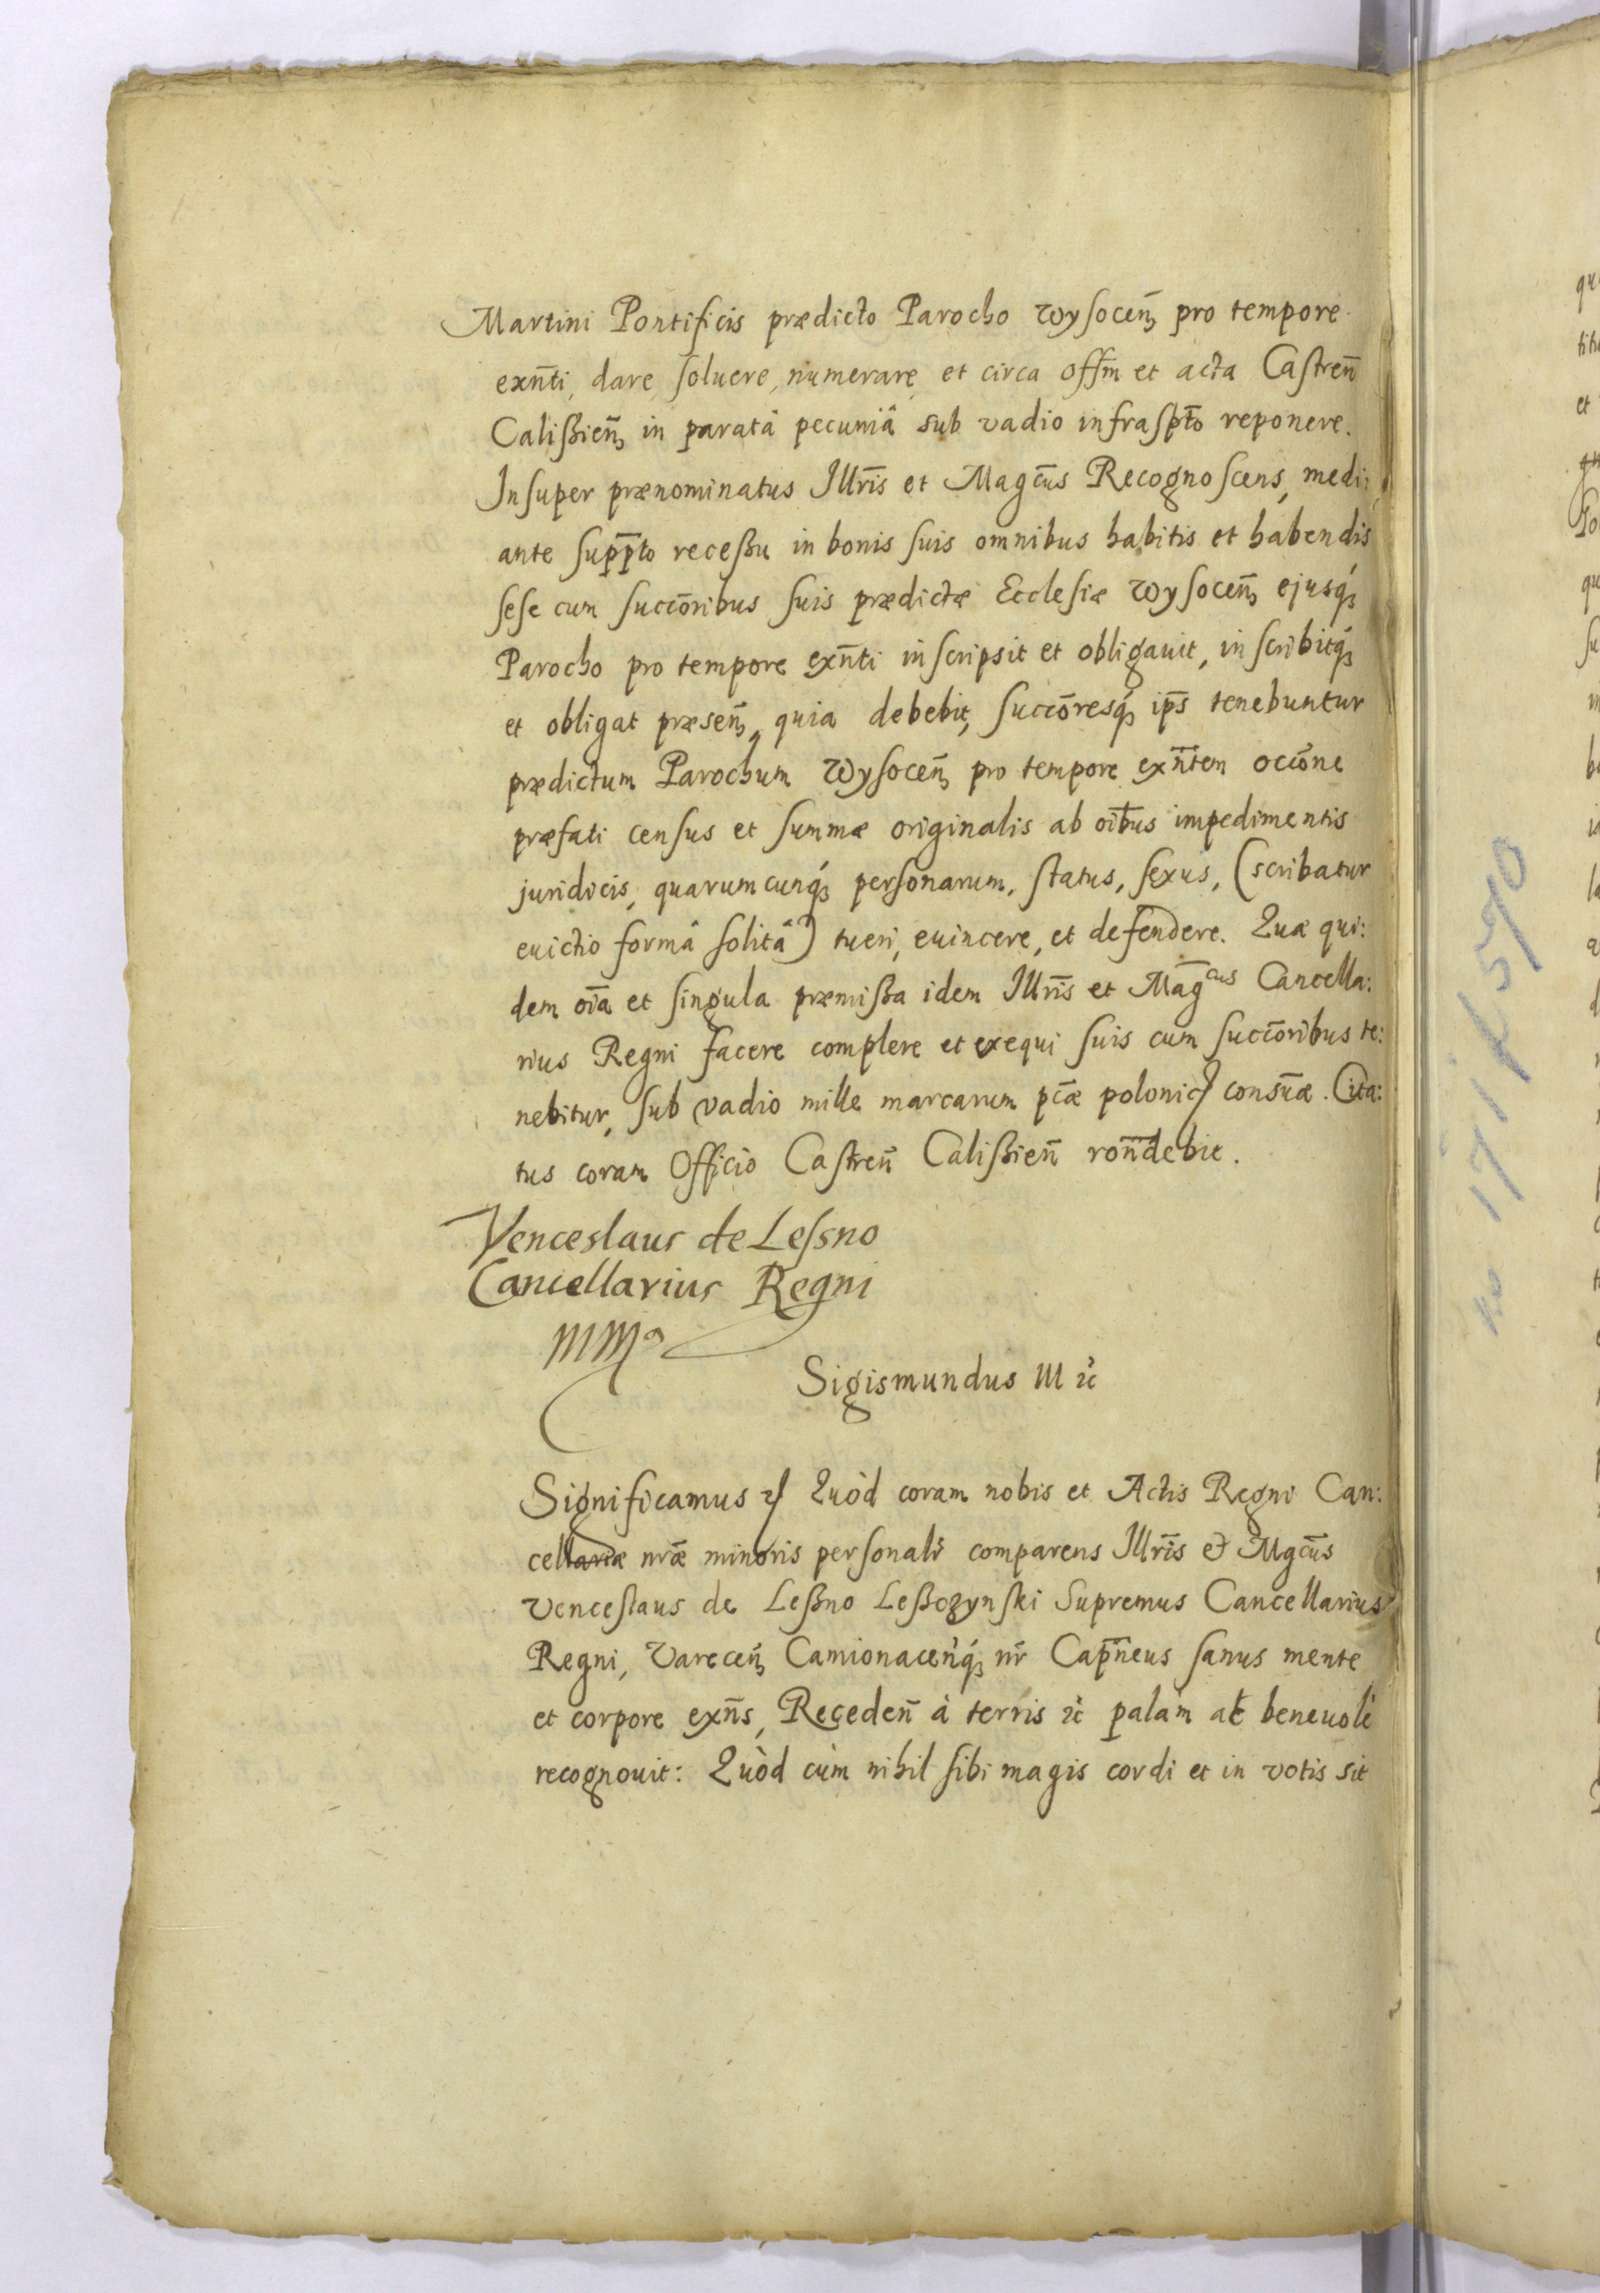 Martini Pontificis prædicto Parocho Wysocen̄ pro tempore
exn̄ti, dare, soluere, numerare, et circa Offm̄ et acta Castren̄
Calissien̄ in paratâ pecuniâ sub vadio infraspt̄o reponere.
Insuper prænominatus Illrīs et Magcūs Recognoscens, medi:
ante supp̄to recessu in bonis suis omnibus habitis et habendis
sese cum succōribus suis prædictæ Ecclesiæ Wysocen̄ ejusq́ꝫ
Parocho pro tempore exn̄ti inscripsit et obligauit, inscribitq́ꝫ
et obligat præsen̄, quia debebit, succōresq́ꝫ ip̄s tenebuntur
prædictum Parochum Wysocen̄ pro tempore exn̄tem occīone
præfati census et summæ originalis ab oībus impedimentis
juridicis, quarumcunq́ꝫ personarum, status, sexus, (scribatur
euictio formâ solitâ) tueri, euincere, et defendere. Quæ qui:
dem oīa et singula præmissa idem Illrīs et Mag̅cus Cancella:
rius Regni facere complere et exequi suis cum succōribus te:
nebitur, sub vadio mille marcarum pc̄æ polonicꝭ consuǣ. Cita:
tus coram Officio Castren̄ Calissien̄ ron̄debit.
Venceslaus de Lessno
Cancellarius Regni
mmp
Sigismundus III ꝛc̓
Significamus ꝛ Quòd coram nobis et Actis Regni Can:
cellariæ nrǣ minoris personalr̓ comparens Illrīs & Mgcūs
Venceslaus de Lessno Lessczynski Supremus Cancellarius
Regni, Varecen̄ Camionacen̄q́ꝫ nr̄ Capn̄eus sanus mente
et corpore exn̄s, Receden̄ à terris ꝛc̓ palam ac benevolè
recognouit: Quòd cùm nihil sibi magis cordi et in votis sit